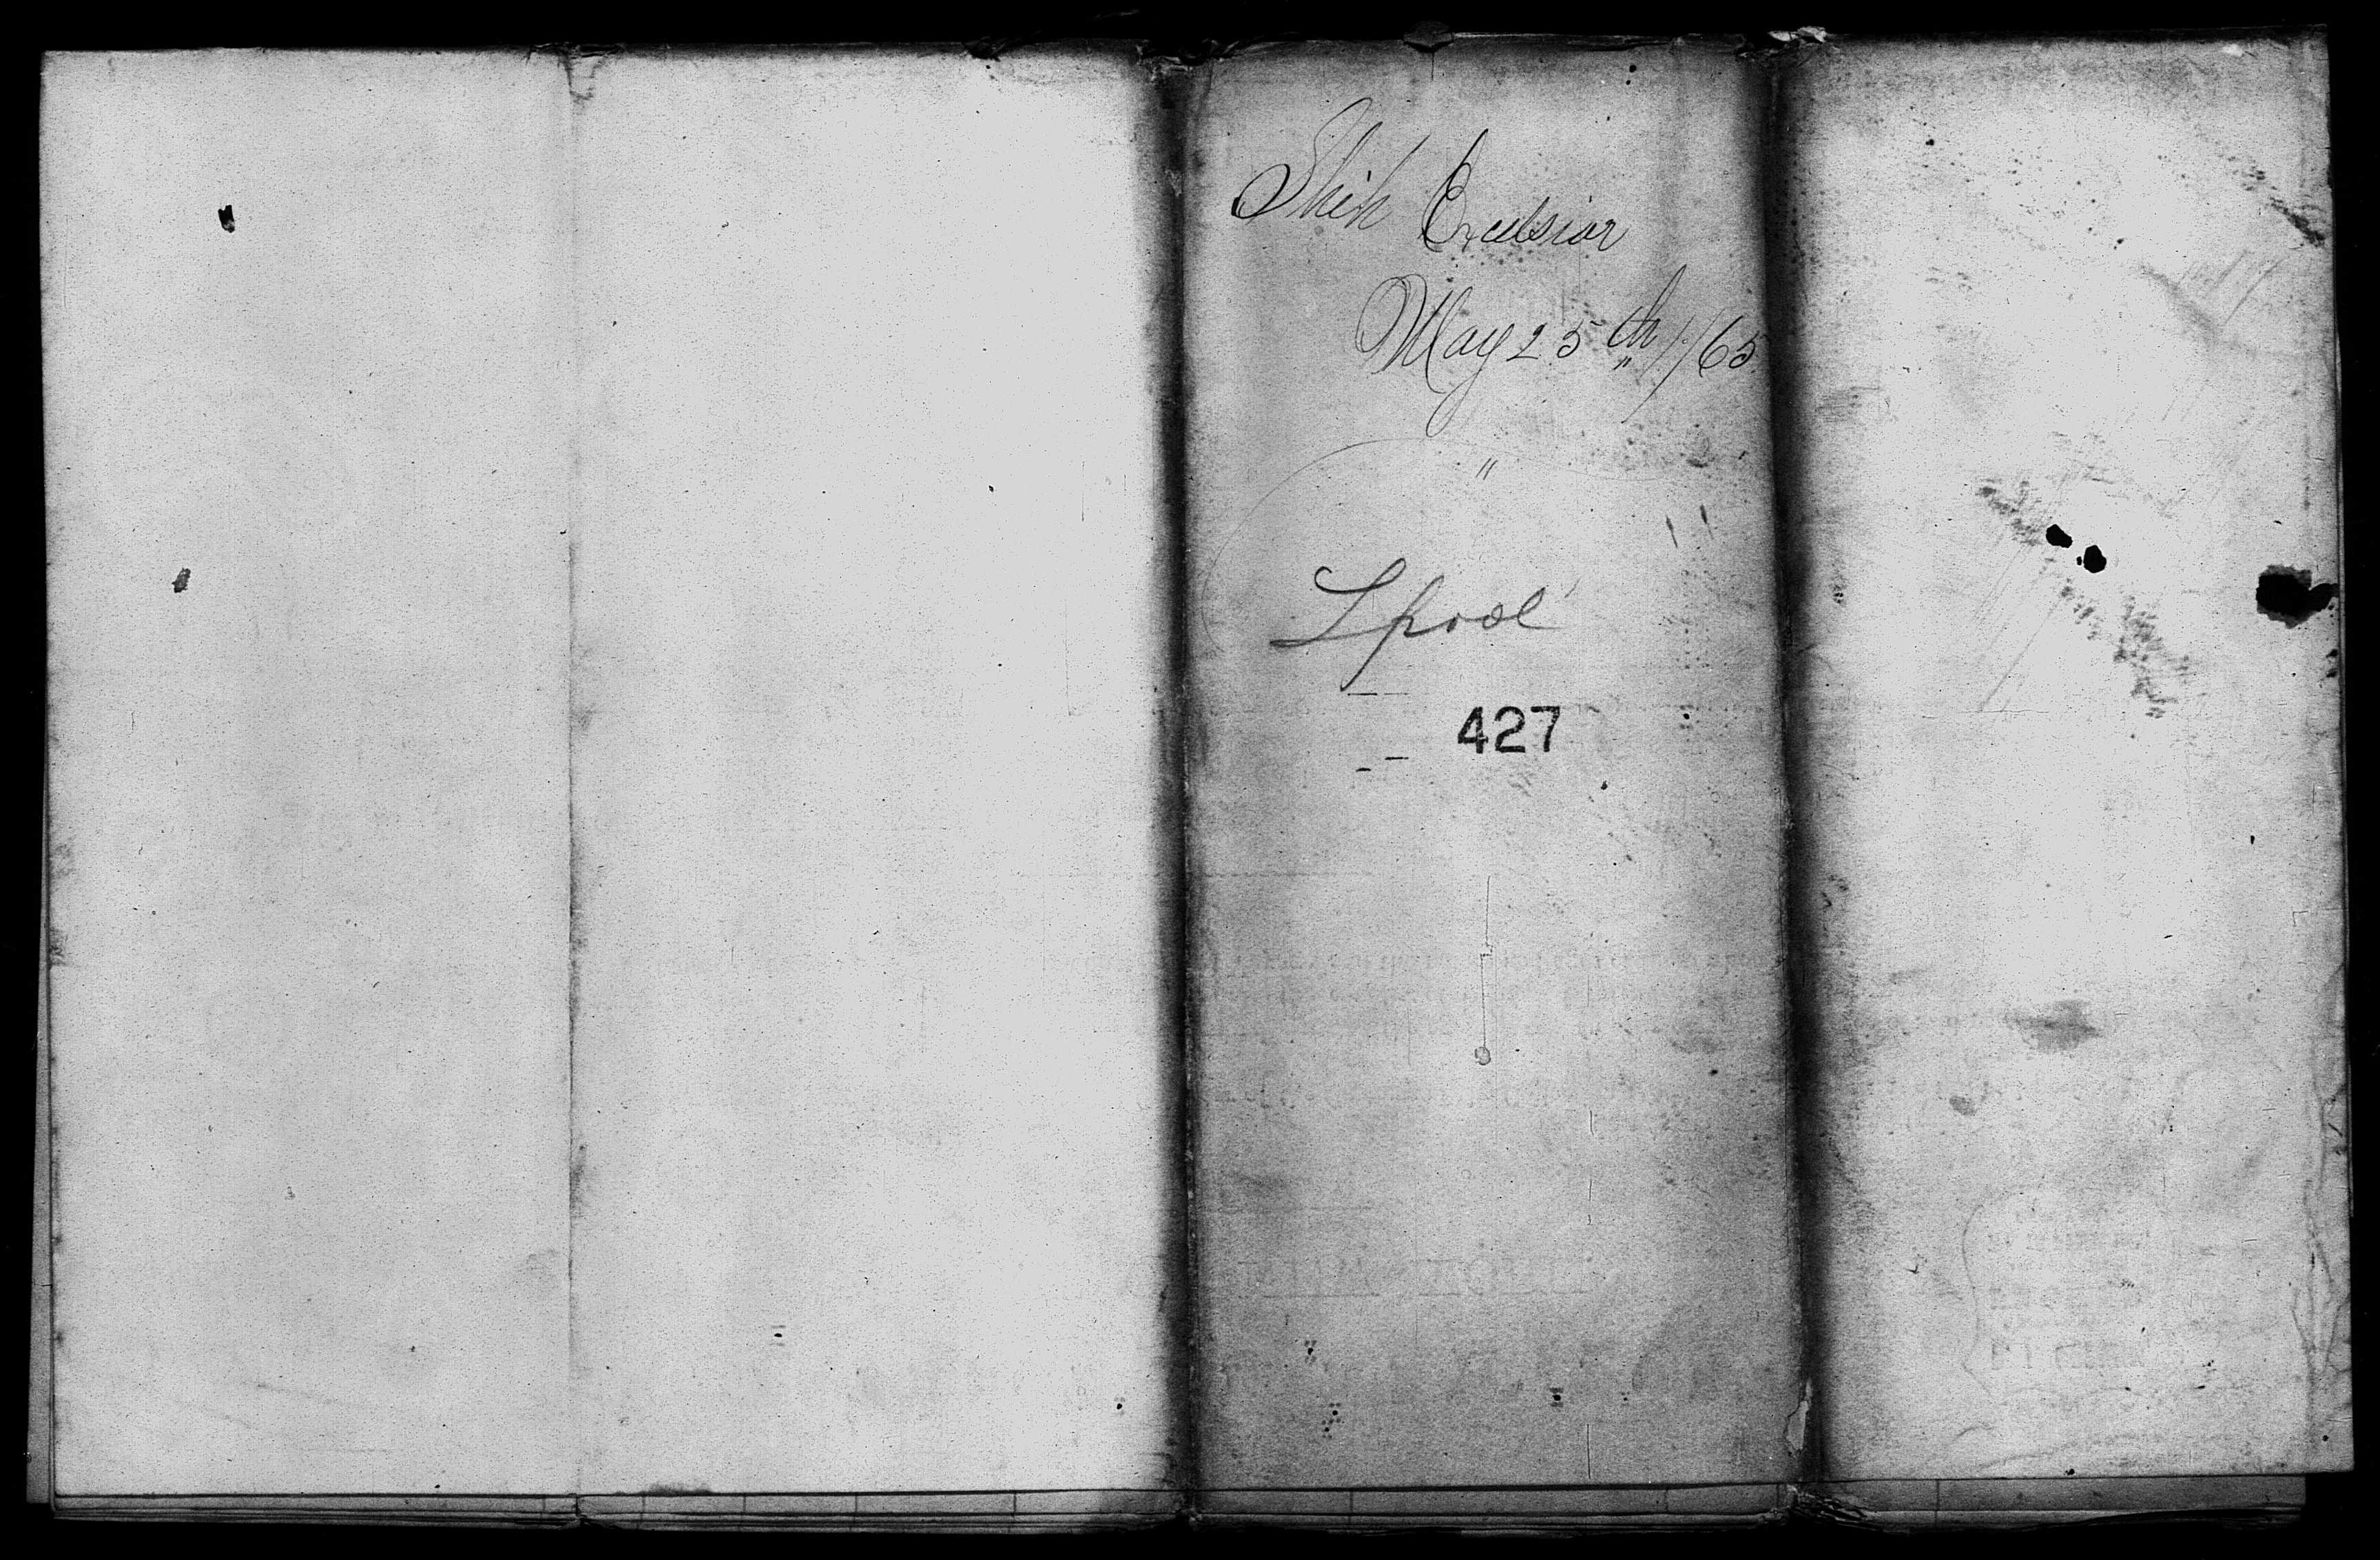 Ship Excelsior
May 25th /65
"
Lpool
427